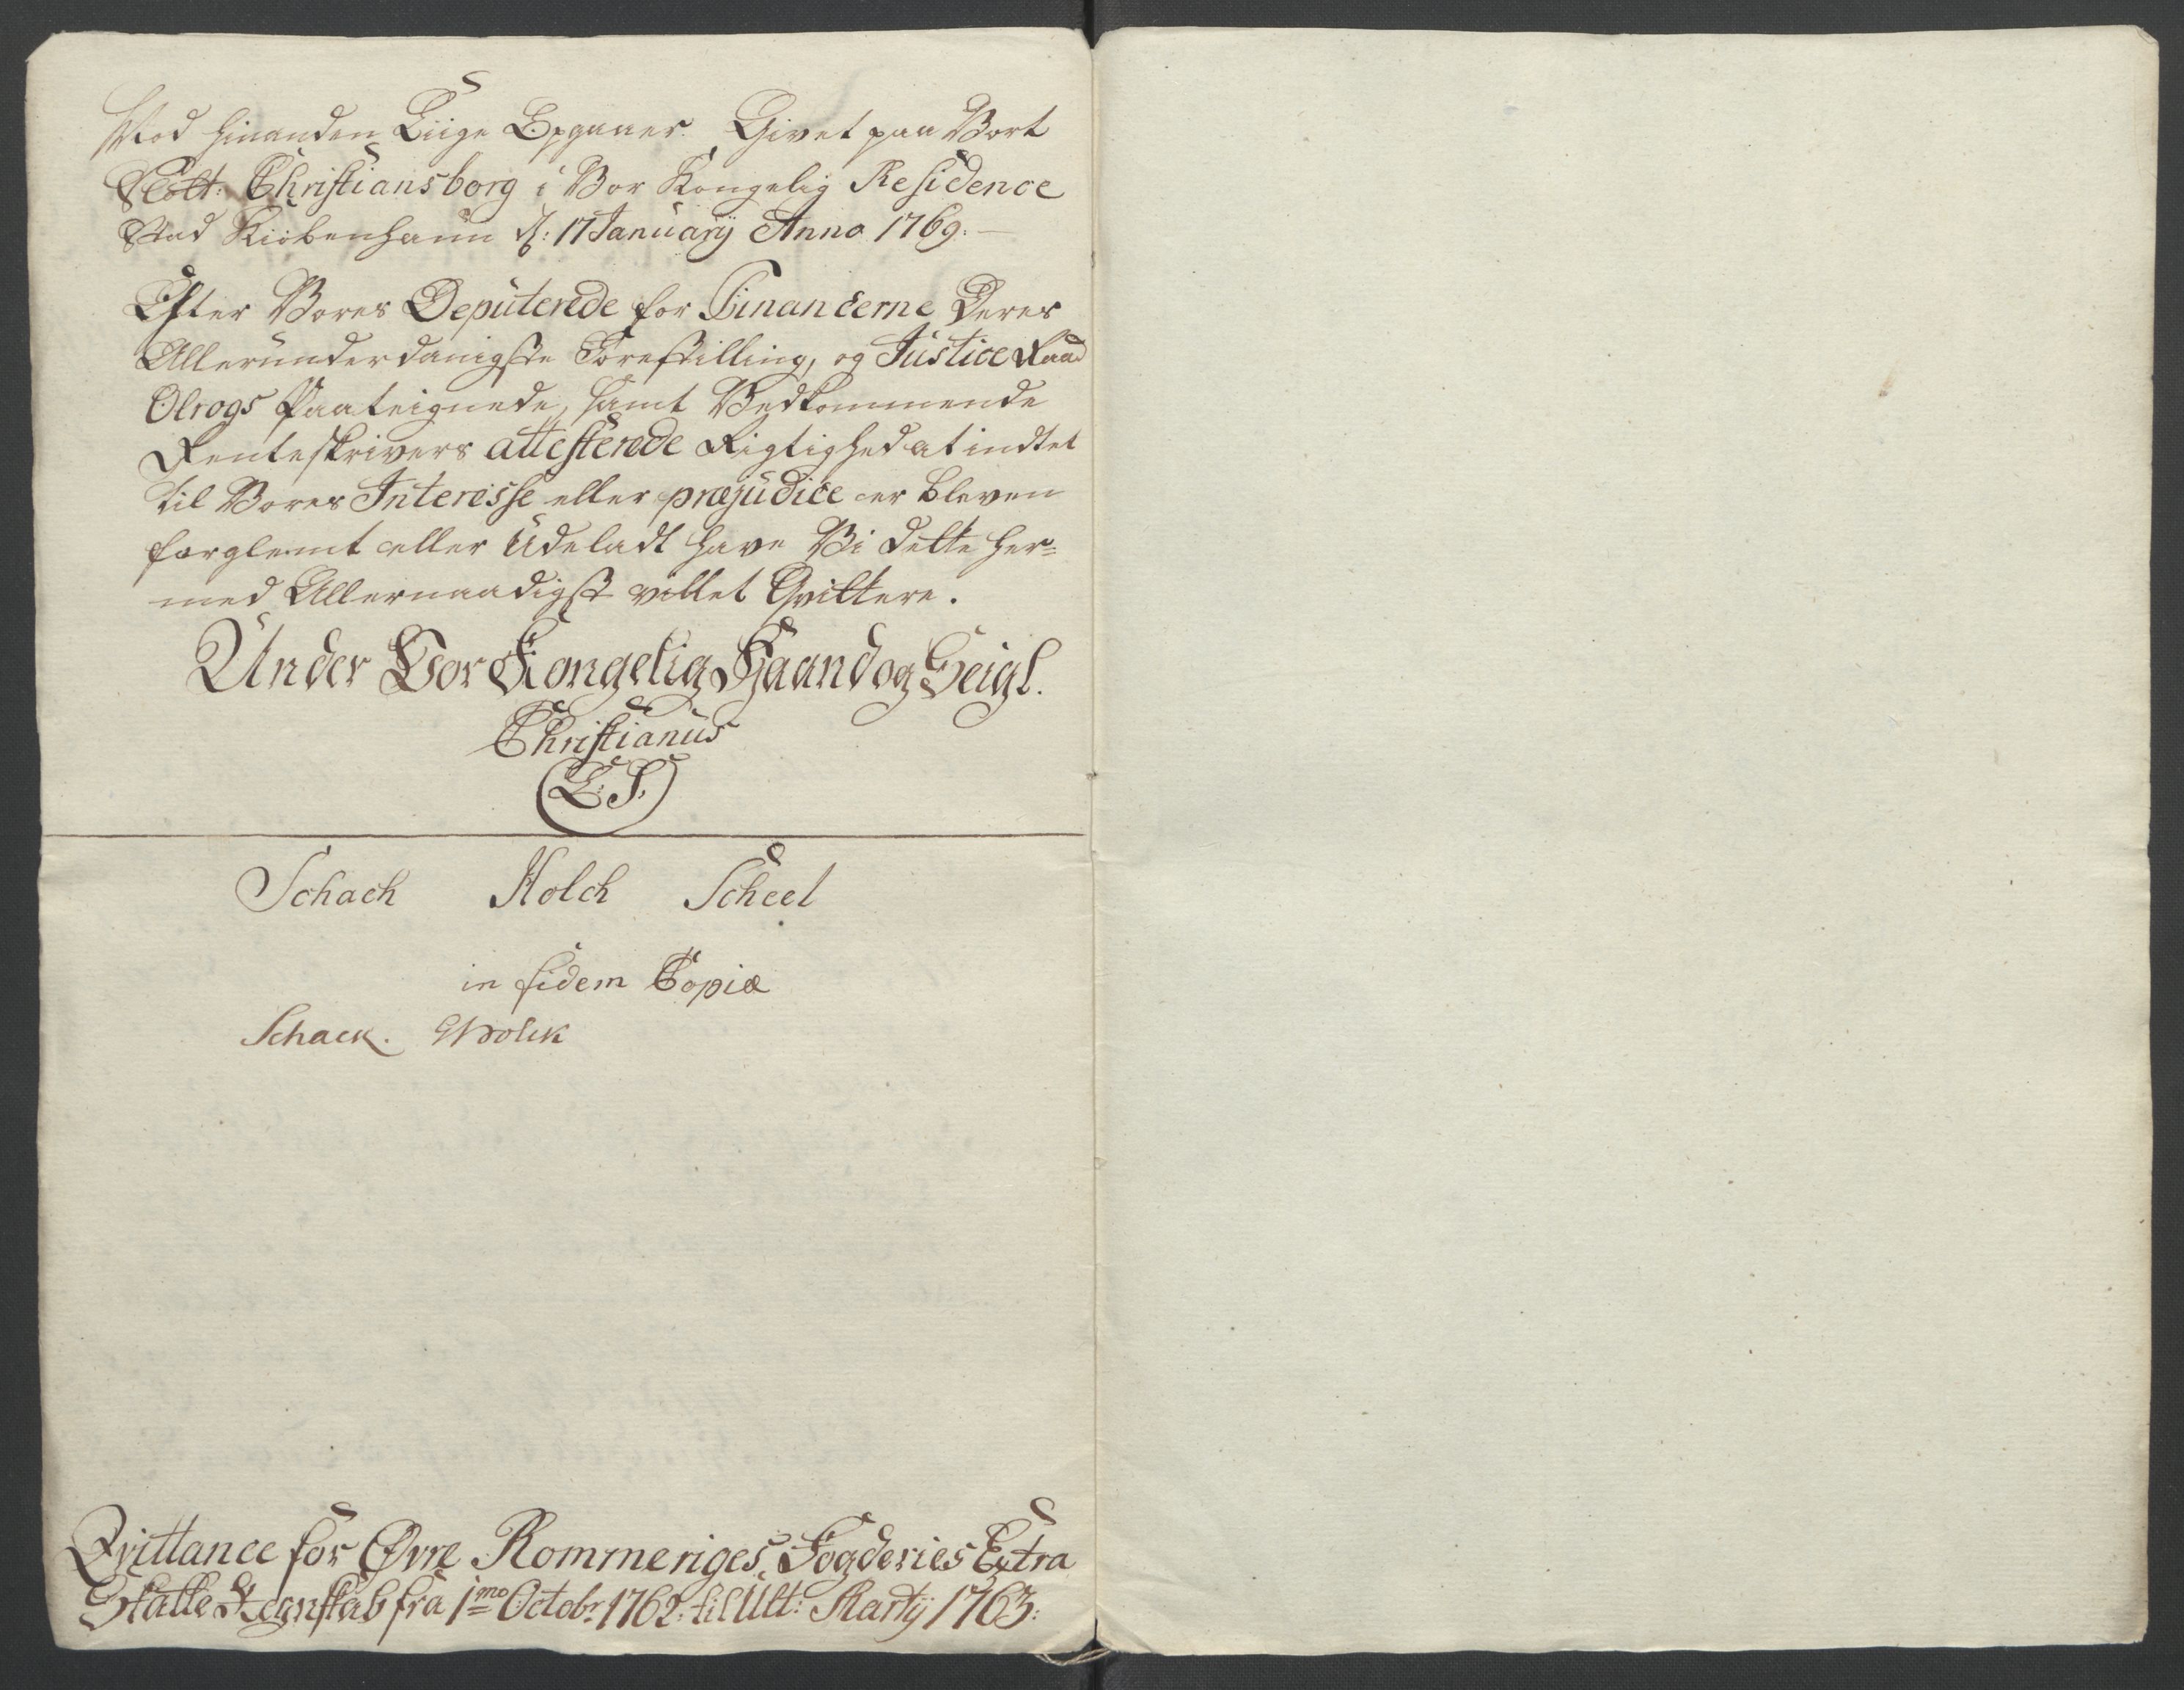 Mod hinanden Liige Opgaaer. Givet paa Vort
Slott: Christiansborg i Vor Kongelig Residence
Stad Kiöbenhaun d: 17 Januarij Anno 1769.
Efter Vores Deputerede for Financerne Deres
Allerunderdanigste Forestilling, og Justice Raad
Olrogs Paateignede, samt Vedkommende
Renteskrivers attesterede Rigtighed at indtet
til Vores Interesse eller præjudice er bleven
forglemt eller Udeladt have Vi dette her=
med Allernaadigst villet Qvittere.
Under Vor Kongelig Haand og Seigl.
Christianus
(L.S.)
Schach Holch Scheel
in fidem Copiæ
Schack.
Qvittance for Øvre Rommeriges Fogderies Extra
Skatte Regnskab fra 1mo Octobr 1762: til Ult: Martij 1763: